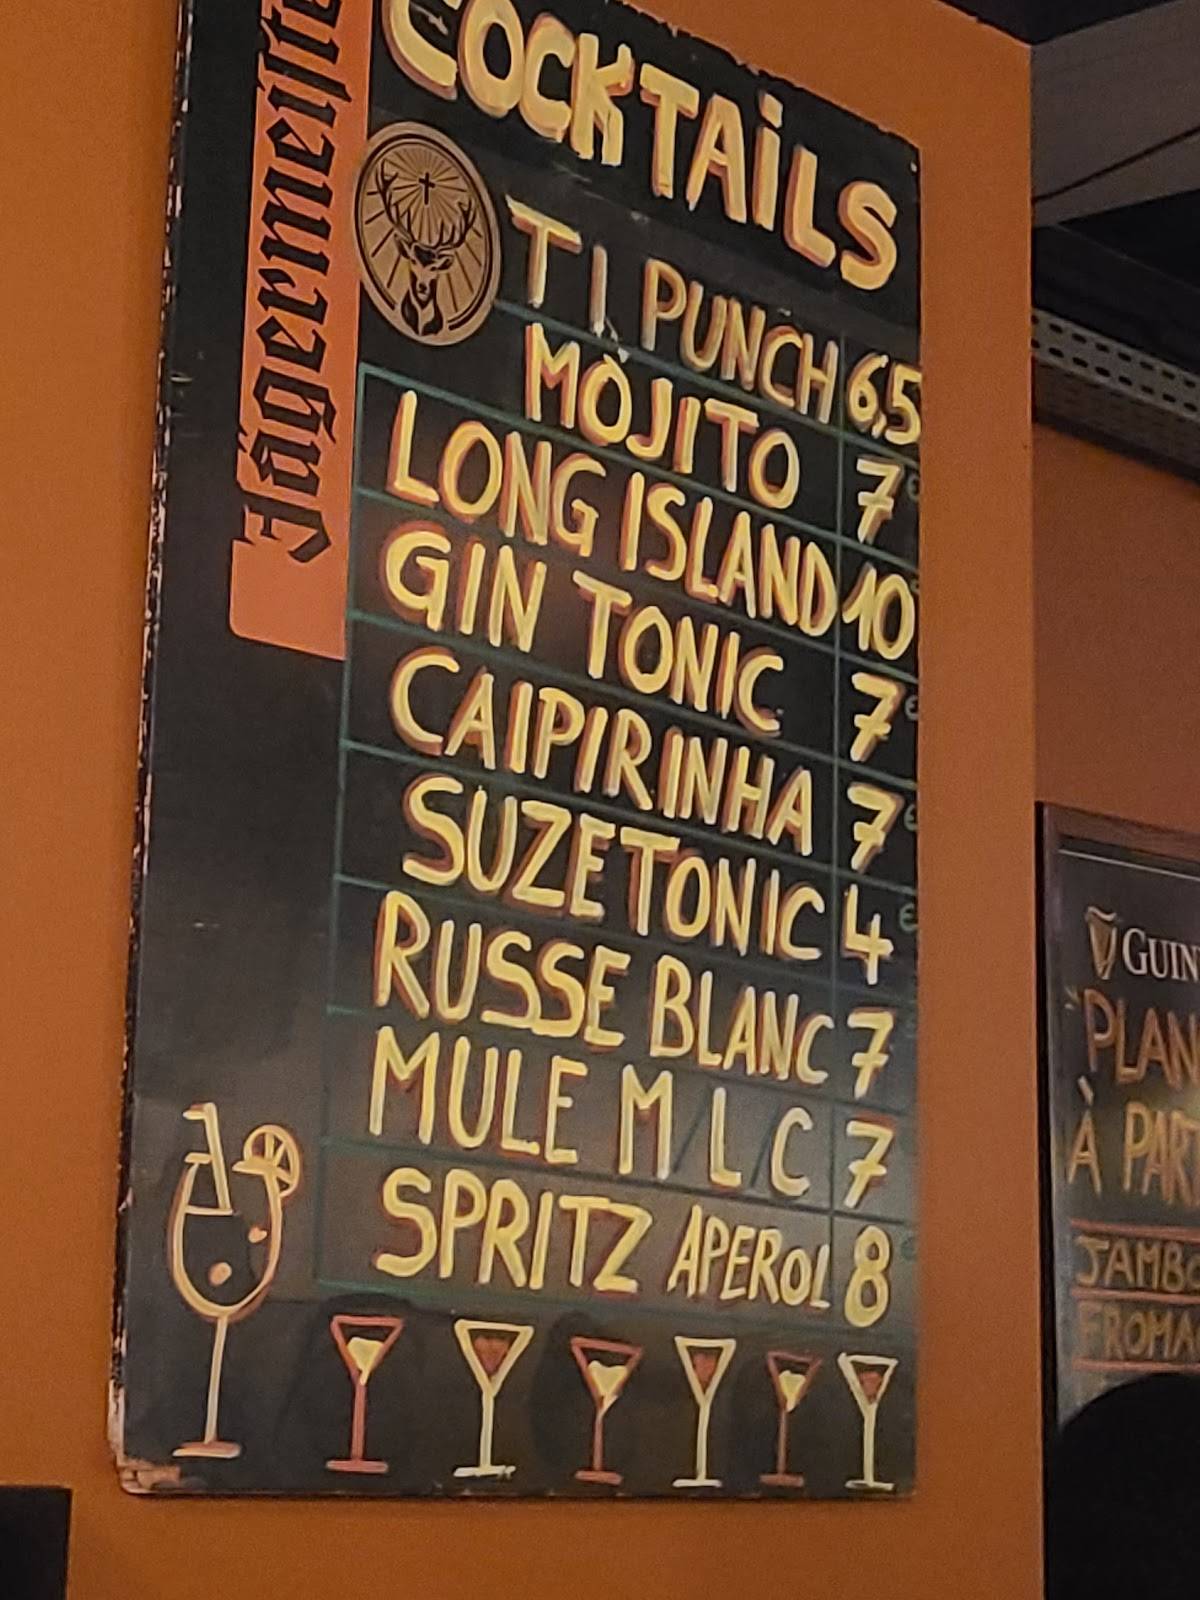 COCKTAiLS
TI PUNCH 6,5
MOJITO 7 €
LONG ISLAND 10
GIN TONIC 7 €
CAIPIRINHA 7 €
SUZE TONIC 4 €
RUSSE BLANC 7
MULE M/L/C 7
SPRITZ APEROL 8 €
GUIN
PLAN
À PART
JAMBO
FROMA